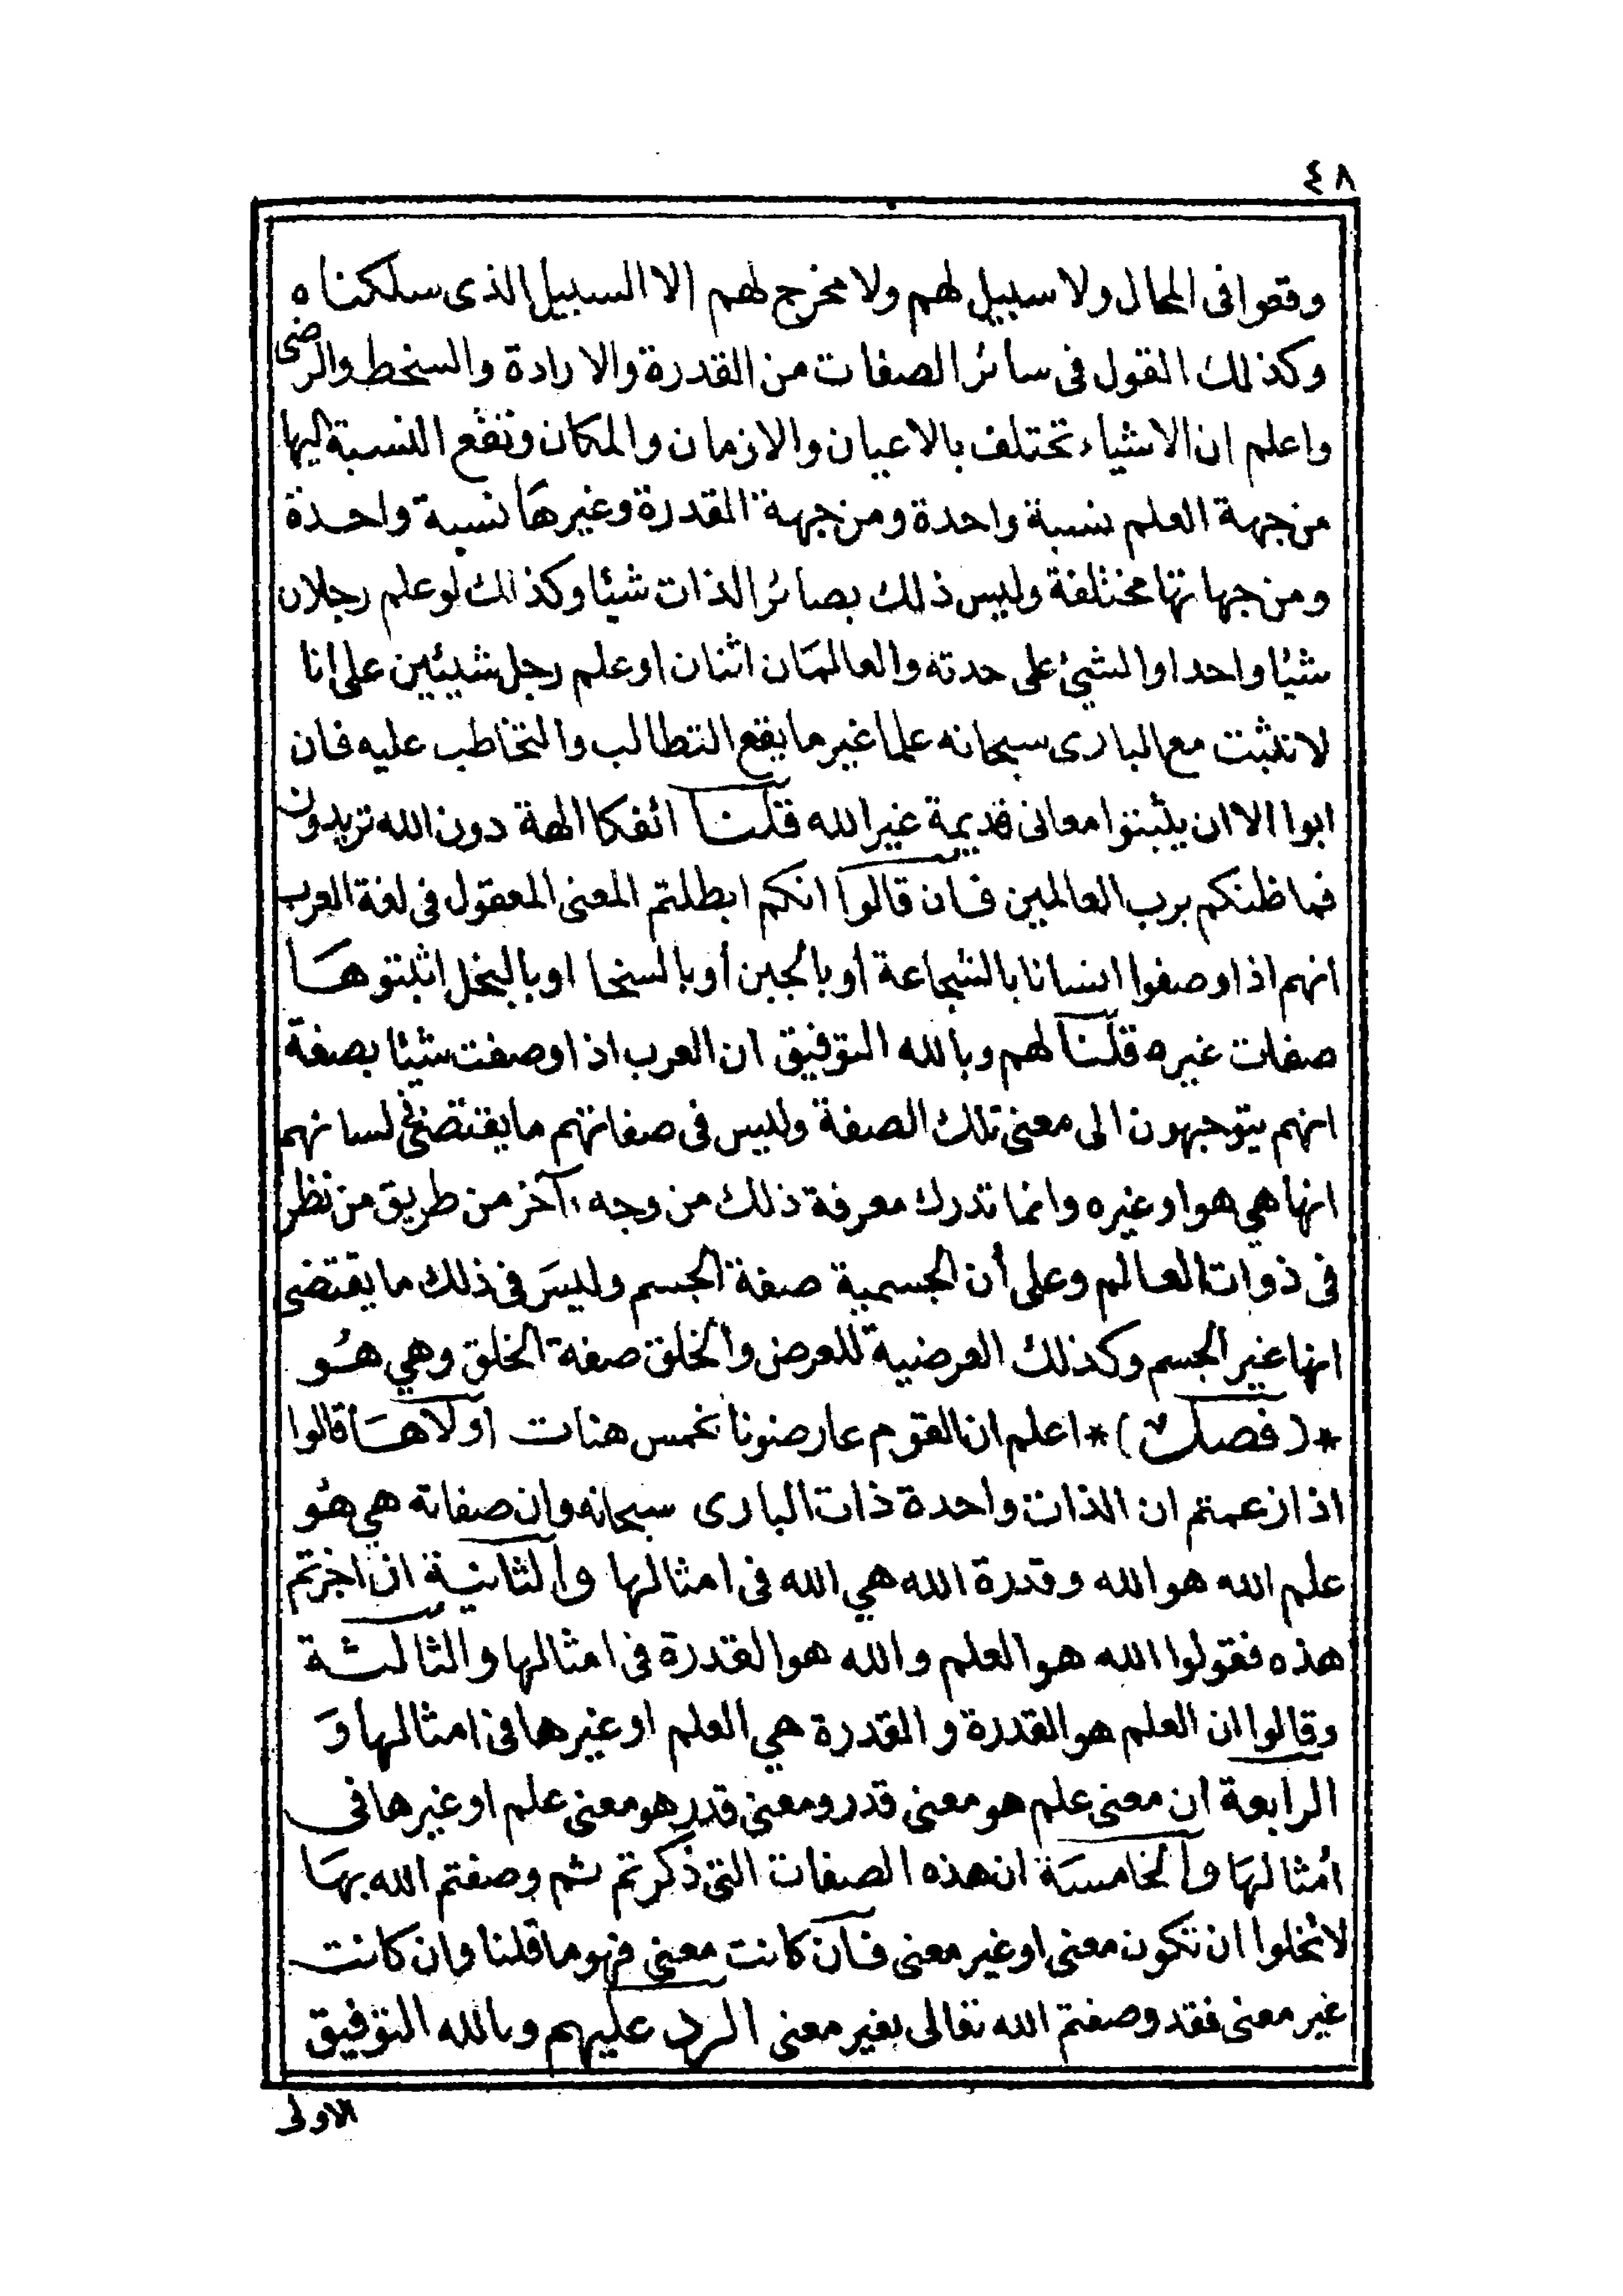 ٤٨
وقعوا فى المحال ولا سبيل لهم ولا مخرج لهم الا السبيل الذى سلكناه
وكذلك القول فى سائر الصفات من القدرة والارادة والسخط والرضى
واعلم ان الاشياء تختلف بالاعيان والازمان والمكان وتقع النسبة اليها
من جهة العلم نسبة واحدة ومن جهة القدرة وغيرها نسبة واحدة
ومن جهاتها مختلفة وليس ذلك بصائر الذات شيئا وكذلك لو علم رجلان
شيئا واحدا والشيئ على حدته والعالمان اثنان او علم رجل شيئين على انا
لا نثبت مع البارى سبحانه علما غير ما يقع التطالب والتخاطب عليه فان
ابوا الا ان يثبتوا معانى قديمة غير الله قلنا ائفكا الهة دون الله تريدون
فما ظنكم برب العالمين فان قالوا انكم ابطلتم المعنى المعقول فى لغة العرب
انهم اذا وصفوا انسانا بالشجاعة أو بالجبن أو بالسخا او بالبخل اثبتوها
صفات غيره قلنا لهم وبالله التوفيق ان العرب اذا وصفت شيئا بصفة
انهم يتوجهون الى معنى تلك الصفة وليس فى صفاتهم ما يقتضى فى لسانهم
انها هي هو او غيره وانما تدرك معرفة ذلك من وجه آخر من طريق من نظر
فى ذوات العالم وعلى أن الجسمية صفة الجسم وليس فى ذلك ما يقتضى
انها غير الجسم وكذلك العرضية للعرض والخلق صفة الخلق وهي هو
*(فصل)* اعلم ان القوم عارضونا بخمس هنات اولاها قالوا
اذا زعمتم ان الذات واحدة ذات البارى سبحانه وان صفاته هي هو
علم الله هو الله وقدرة الله هي الله فى امثالها والثانية ان اجزتم
هذه فقولوا الله هو العلم والله هو القدرة فى امثالها والثالثة
وقالوا ان العلم هو القدرة و القدرة هي العلم او غيرها فى امثالها و
الرابعة ان معنى علم هو معنى قدر ومعنى قدر هو معنى علم او غيرها فى
أمثالها والخامسة ان هذه الصفات التى ذكرتم ثم وصفتم الله بها
لا تخلوا ان تكون معنى او غير معنى فان كانت معنى فهو ما قلنا وان كانت
غير معنى فقد وصفتم الله تعالى بغير معنى الرد عليهم وبالله التوفيق
الاولى